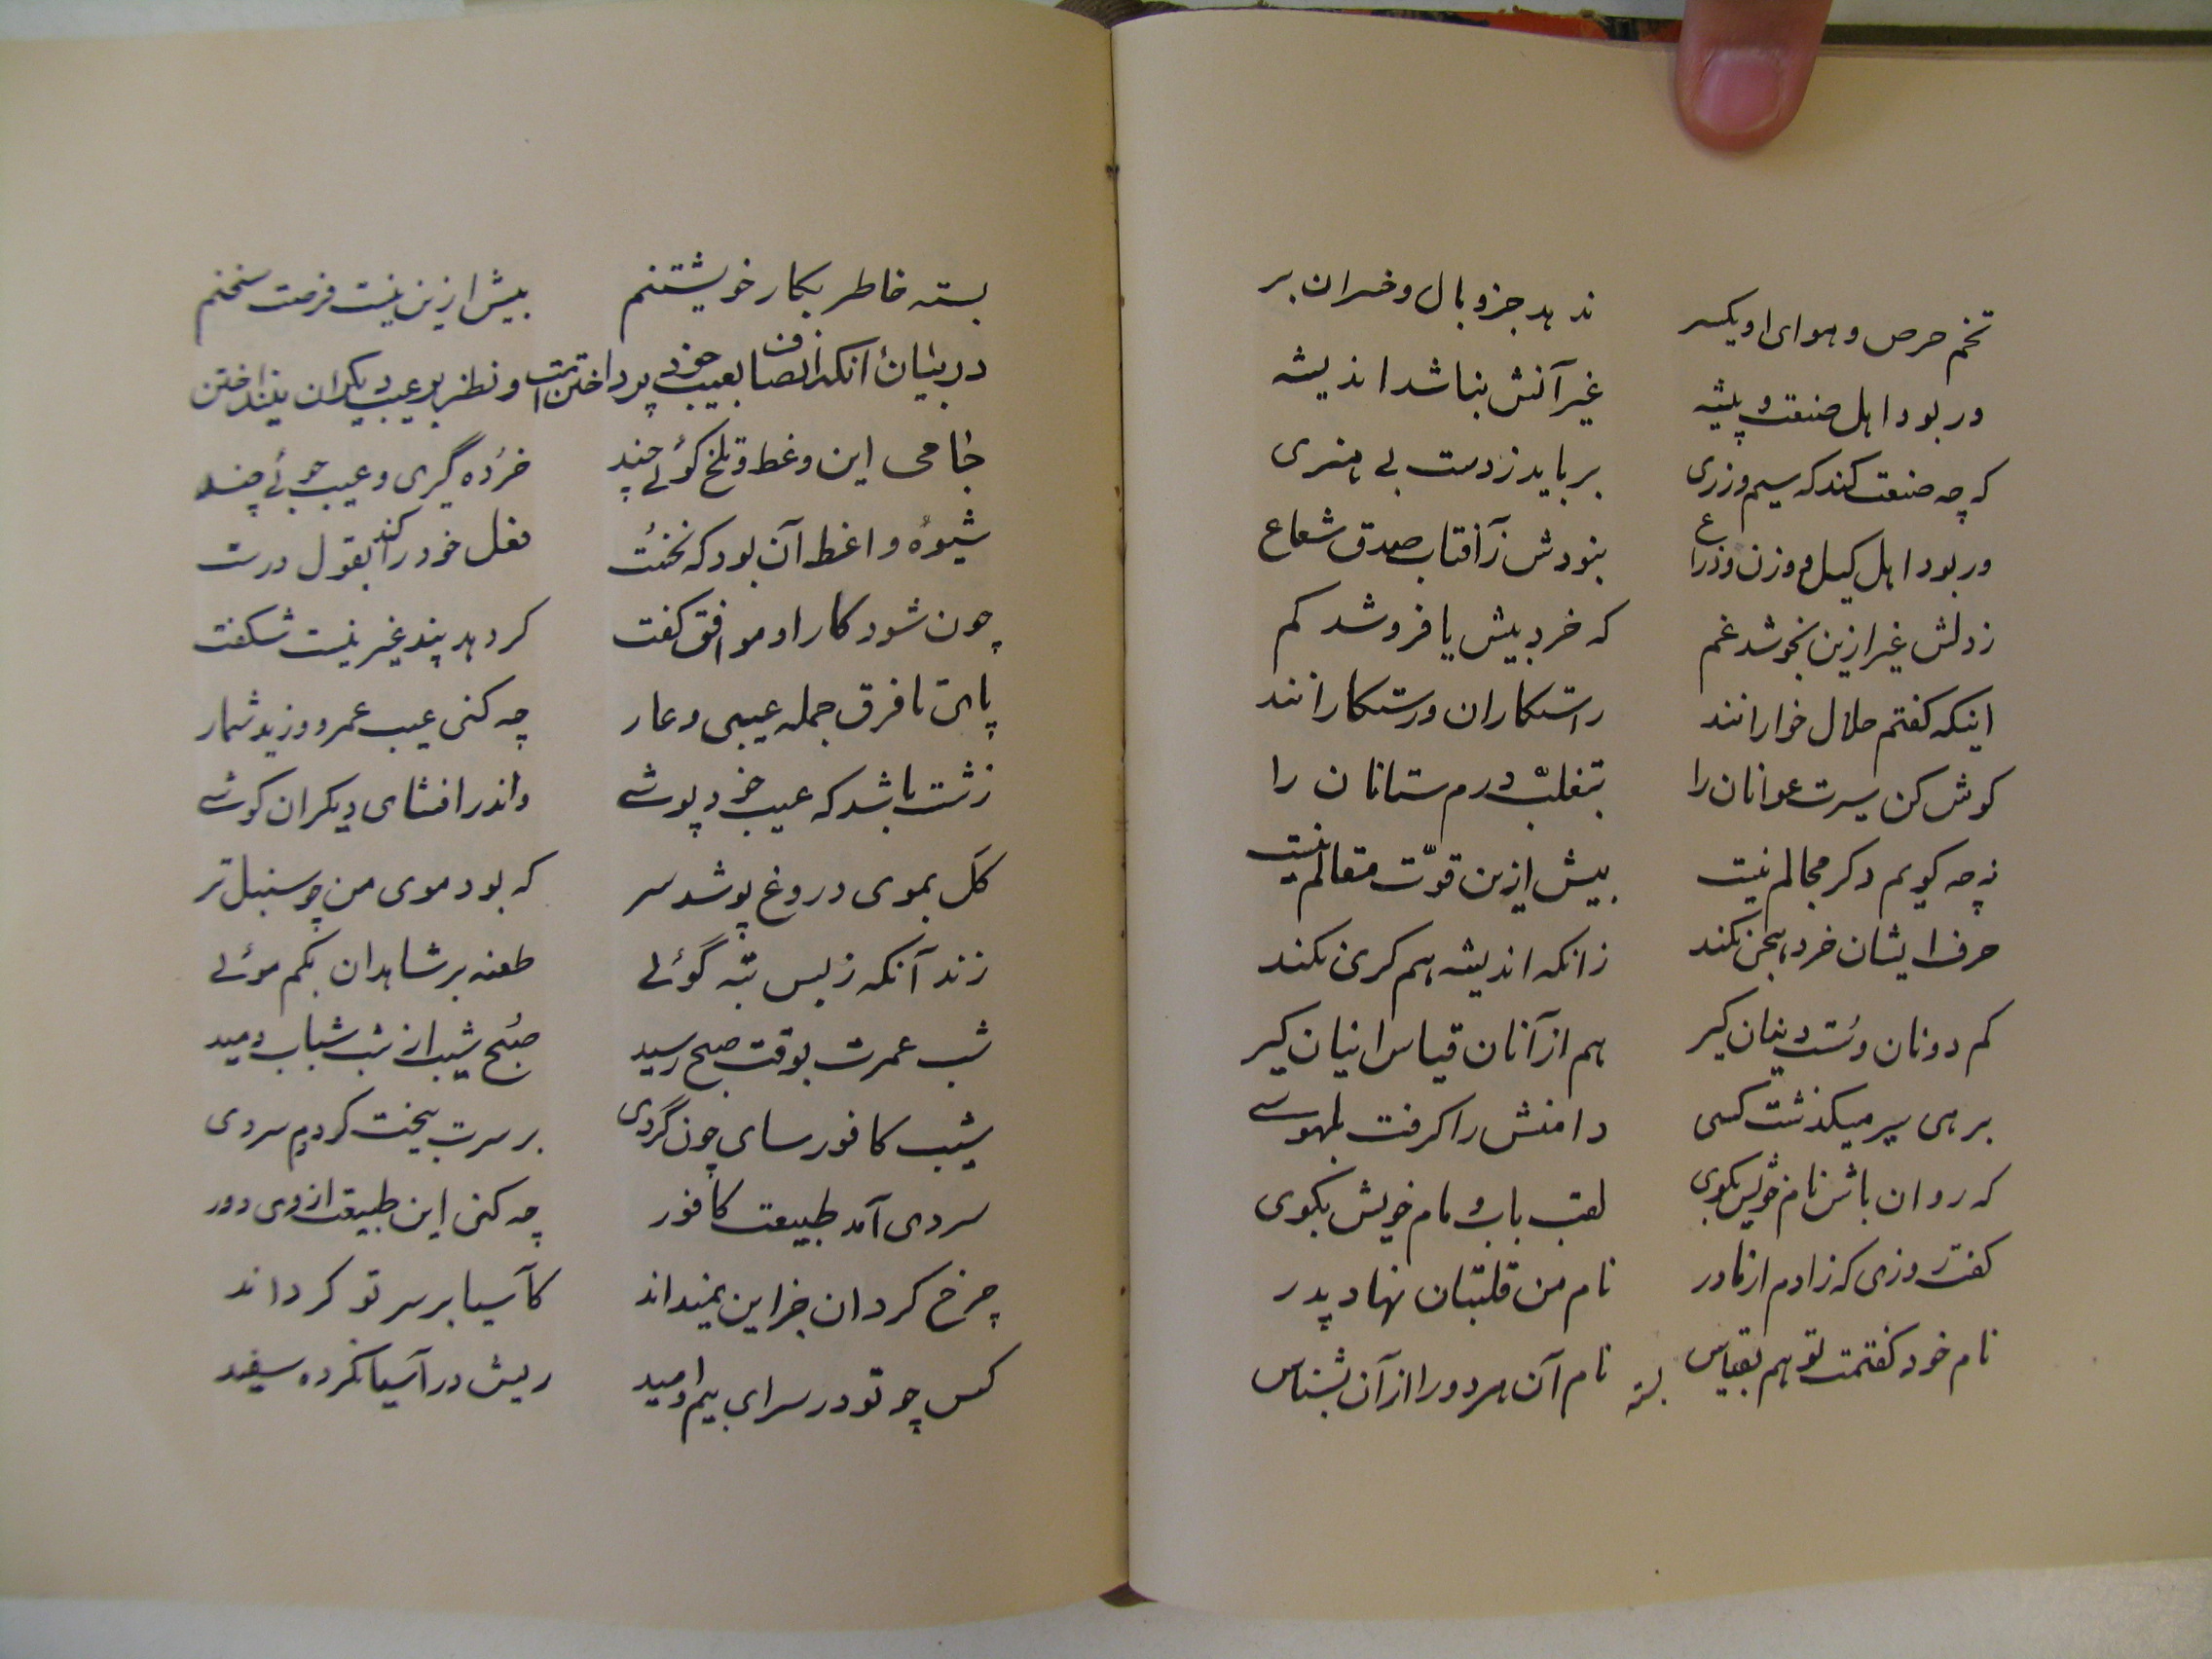 تخم حرص و هوای او یکسر ندهد جز وبال و خسران بر
ور بود اهل صنعت و پیشه غیر آنش نباشد اندیشه
که چه صنعت کند که سیم و زری برباید ز دست بی هنری
ور بود اهل کیل و وزن و ذراع نبودش ز آفتاب صدق شعاع
ز دلش غیر ازین نجوشد غم که خرد بیش یا فروشد کم
اینکه کفتم حلال خوارانند راستکاران و رستکارانند
کوش کن سیرت عوانان را بتغلّب درم ستانان را
نه چه کویم دکر مجالم نیست بیش ازین قوّت مقالم نیست
حرف ایشان خرد بهجی نکند زانکه اندیشه هم کری نکند
کم دونان و سست دینان کیر هم از آنان قیاس اینان کیر
برهی پیر میکذشت کسی دامنش را کرفت بلهوسی
که روان باش نام خویش بکوی لقب باب و مام خویش بکوی
کفت روزی که زادم از مادر نام من قلتبان نهاد پدر
نام خود کفتمت تو هم بقیاس نام آن هر دو را از آن بشناس
بسته
بسته خاطر بکار خویشتنم بیش ازین نیست فرصت سخنم
در بیان آنکه انصاف بعیب خود پرداختن است و نظر بر عیب دیکران نینداختن
جامی این وعظ و تلخ کوئی چند خرده گیری و عیب جوئی چند
شیوهٔ واعظ آن بود که نخست فعل خود را کند بقول درست
چون شود کار او موافق کفت کر دهد پند غیر نیست شکفت
پای تا فرق جمله عیبی و عار چه کنی عیب عمرو و زید شمار
زشت باشد که عیب خود پوشی واندر افشای دیکران کوشی
کَل بموی دروغ پوشد سر که بود موی من چو سنبل تر
زند آنکه ز بس تبه گوئی طعنه بر شاهدان بکم موئی
شب عمرت بوقت صبح رسید صُبح شیب از شب شباب دمید
شیب کافورسای چون گردی بر سرت بیخت کرد دم سردی
سردی آمد طبیعت کافور چه کنی این طبیعت از وی دور
چرخ کردان جز این نمیداند کآسیا بر سر تو کرداند
کس چو تو در سرای بیم و امید ریش در آسیا نکرده سفید